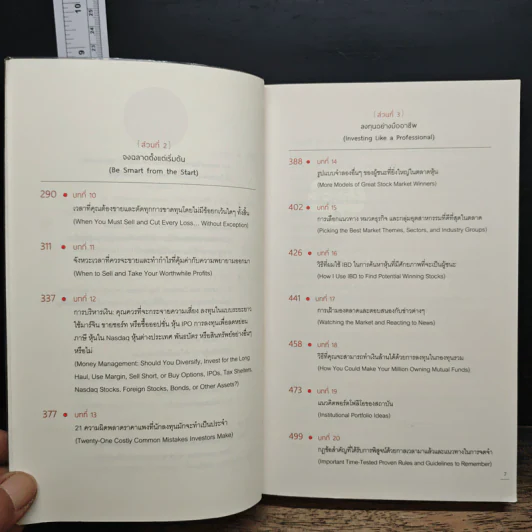 10
9
(ส่วนที่ 2)
จงฉลาดตั้งแต่เริ่มต้น
(Be Smart from the Start)
290 • บทที่ 10
เวลาที่คุณต้องขายและตัดทุกการขาดทุนโดยไม่มีข้อยกเว้นใดๆ ทั้งสิ้น
(When You Must Sell and Cut Every Loss... Without Exception)
311 • บทที่ 11
จังหวะเวลาที่ควรจะขายและทำกำไรที่คุ้มค่ากับความพยายามออกมา
(When to Sell and Take Your Worthwhile Profits)
337 • บทที่ 12
การบริหารเงิน: คุณควรที่จะกระจายความเสี่ยง ลงทุนในแบบระยะยาว
ใช้มาร์จิน ขายชอร์ท หรือซื้อออปชั่น หุ้น IPO การลงทุนเพื่อลดหย่อน
ภาษี หุ้นใน Nasdaq หุ้นต่างประเทศ พันธบัตร หรือสินทรัพย์อย่างอื่นๆ
หรือไม่
(Money Management: Should You Diversify, Invest for the Long
Haul, Use Margin, Sell Short, or Buy Options, IPOs, Tax Shelters,
Nasdaq Stocks, Foreign Stocks, Bonds, or Other Assets?)
377 • บทที่ 13
21 ความผิดพลาดราคาแพงที่นักลงทุนมักจะทำเป็นประจำ
(Twenty-One Costly Common Mistakes Investors Make)
(ส่วนที่ 3)
ลงทุนอย่างมืออาชีพ
(Investing Like a Professional)
388 • บทที่ 14
รูปแบบจำลองอื่นๆ ของผู้ชนะที่ยิ่งใหญ่ในตลาดหุ้น
(More Models of Great Stock Market Winners)
402 • บทที่ 15
การเลือกแนวทาง หมวดธุรกิจ และกลุ่มอุตสาหกรรมที่ดีที่สุดในตลาด
(Picking the Best Market Themes, Sectors, and Industry Groups)
426 • บทที่ 16
วิธีที่ผมใช้ IBD ในการค้นหาหุ้นที่มีศักยภาพที่จะเป็นผู้ชนะ
(How I Use IBD to Find Potential Winning Stocks)
441 • บทที่ 17
การเฝ้ามองตลาดและตอบสนองกับข่าวต่างๆ
(Watching the Market and Reacting to News)
458 • บทที่ 18
วิธีที่คุณจะสามารถทำเงินล้านได้ด้วยการลงทุนในกองทุนรวม
(How You Could Make Your Million Owning Mutual Funds)
473 • บทที่ 19
แนวคิดพอร์ตโฟลิโอของสถาบัน
(Institutional Portfolio Ideas)
499 • บทที่ 20
กฎข้อสำคัญที่ได้รับการพิสูจน์ด้วยกาลเวลามาแล้วและแนวทางในการจดจำ
(Important Time-Tested Proven Rules and Guidelines to Remember)